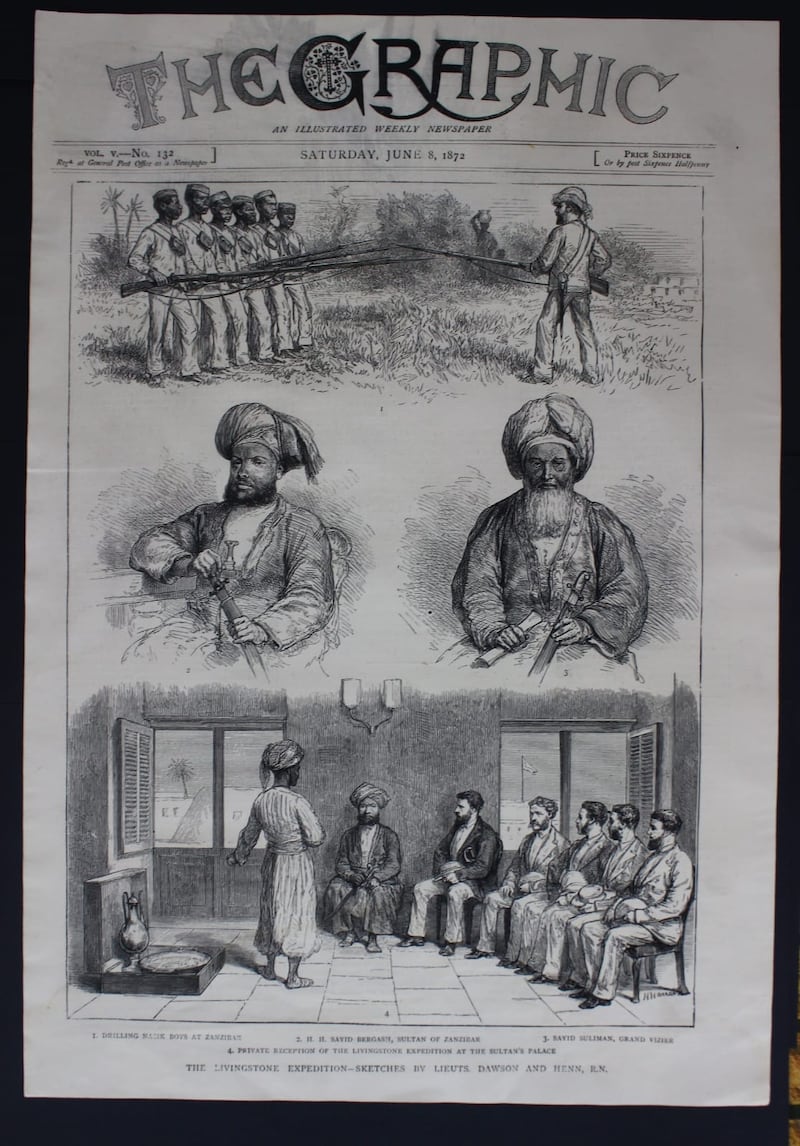 THE GRAPHIC
AN ILLUSTRATED WEEKLY NEWSPAPER
VOL. V.—No. 132 ]
Regd at General Post Office as a Newspaper
SATURDAY, JUNE 8, 1872
[ PRICE SIXPENCE
Or by post Sixpence Halfpenny
1
2
3
4
1. DRILLING NASIK BOYS AT ZANZIBAR 2. H. H. SAYID BERGASH, SULTAN OF ZANZIBAR 3. SAYID SULIMAN, GRAND VIZIER
4. PRIVATE RECEPTION OF THE LIVINGSTONE EXPEDITION AT THE SULTAN'S PALACE
THE LIVINGSTONE EXPEDITION—SKETCHES BY LIEUTS. DAWSON AND HENN, R.N.